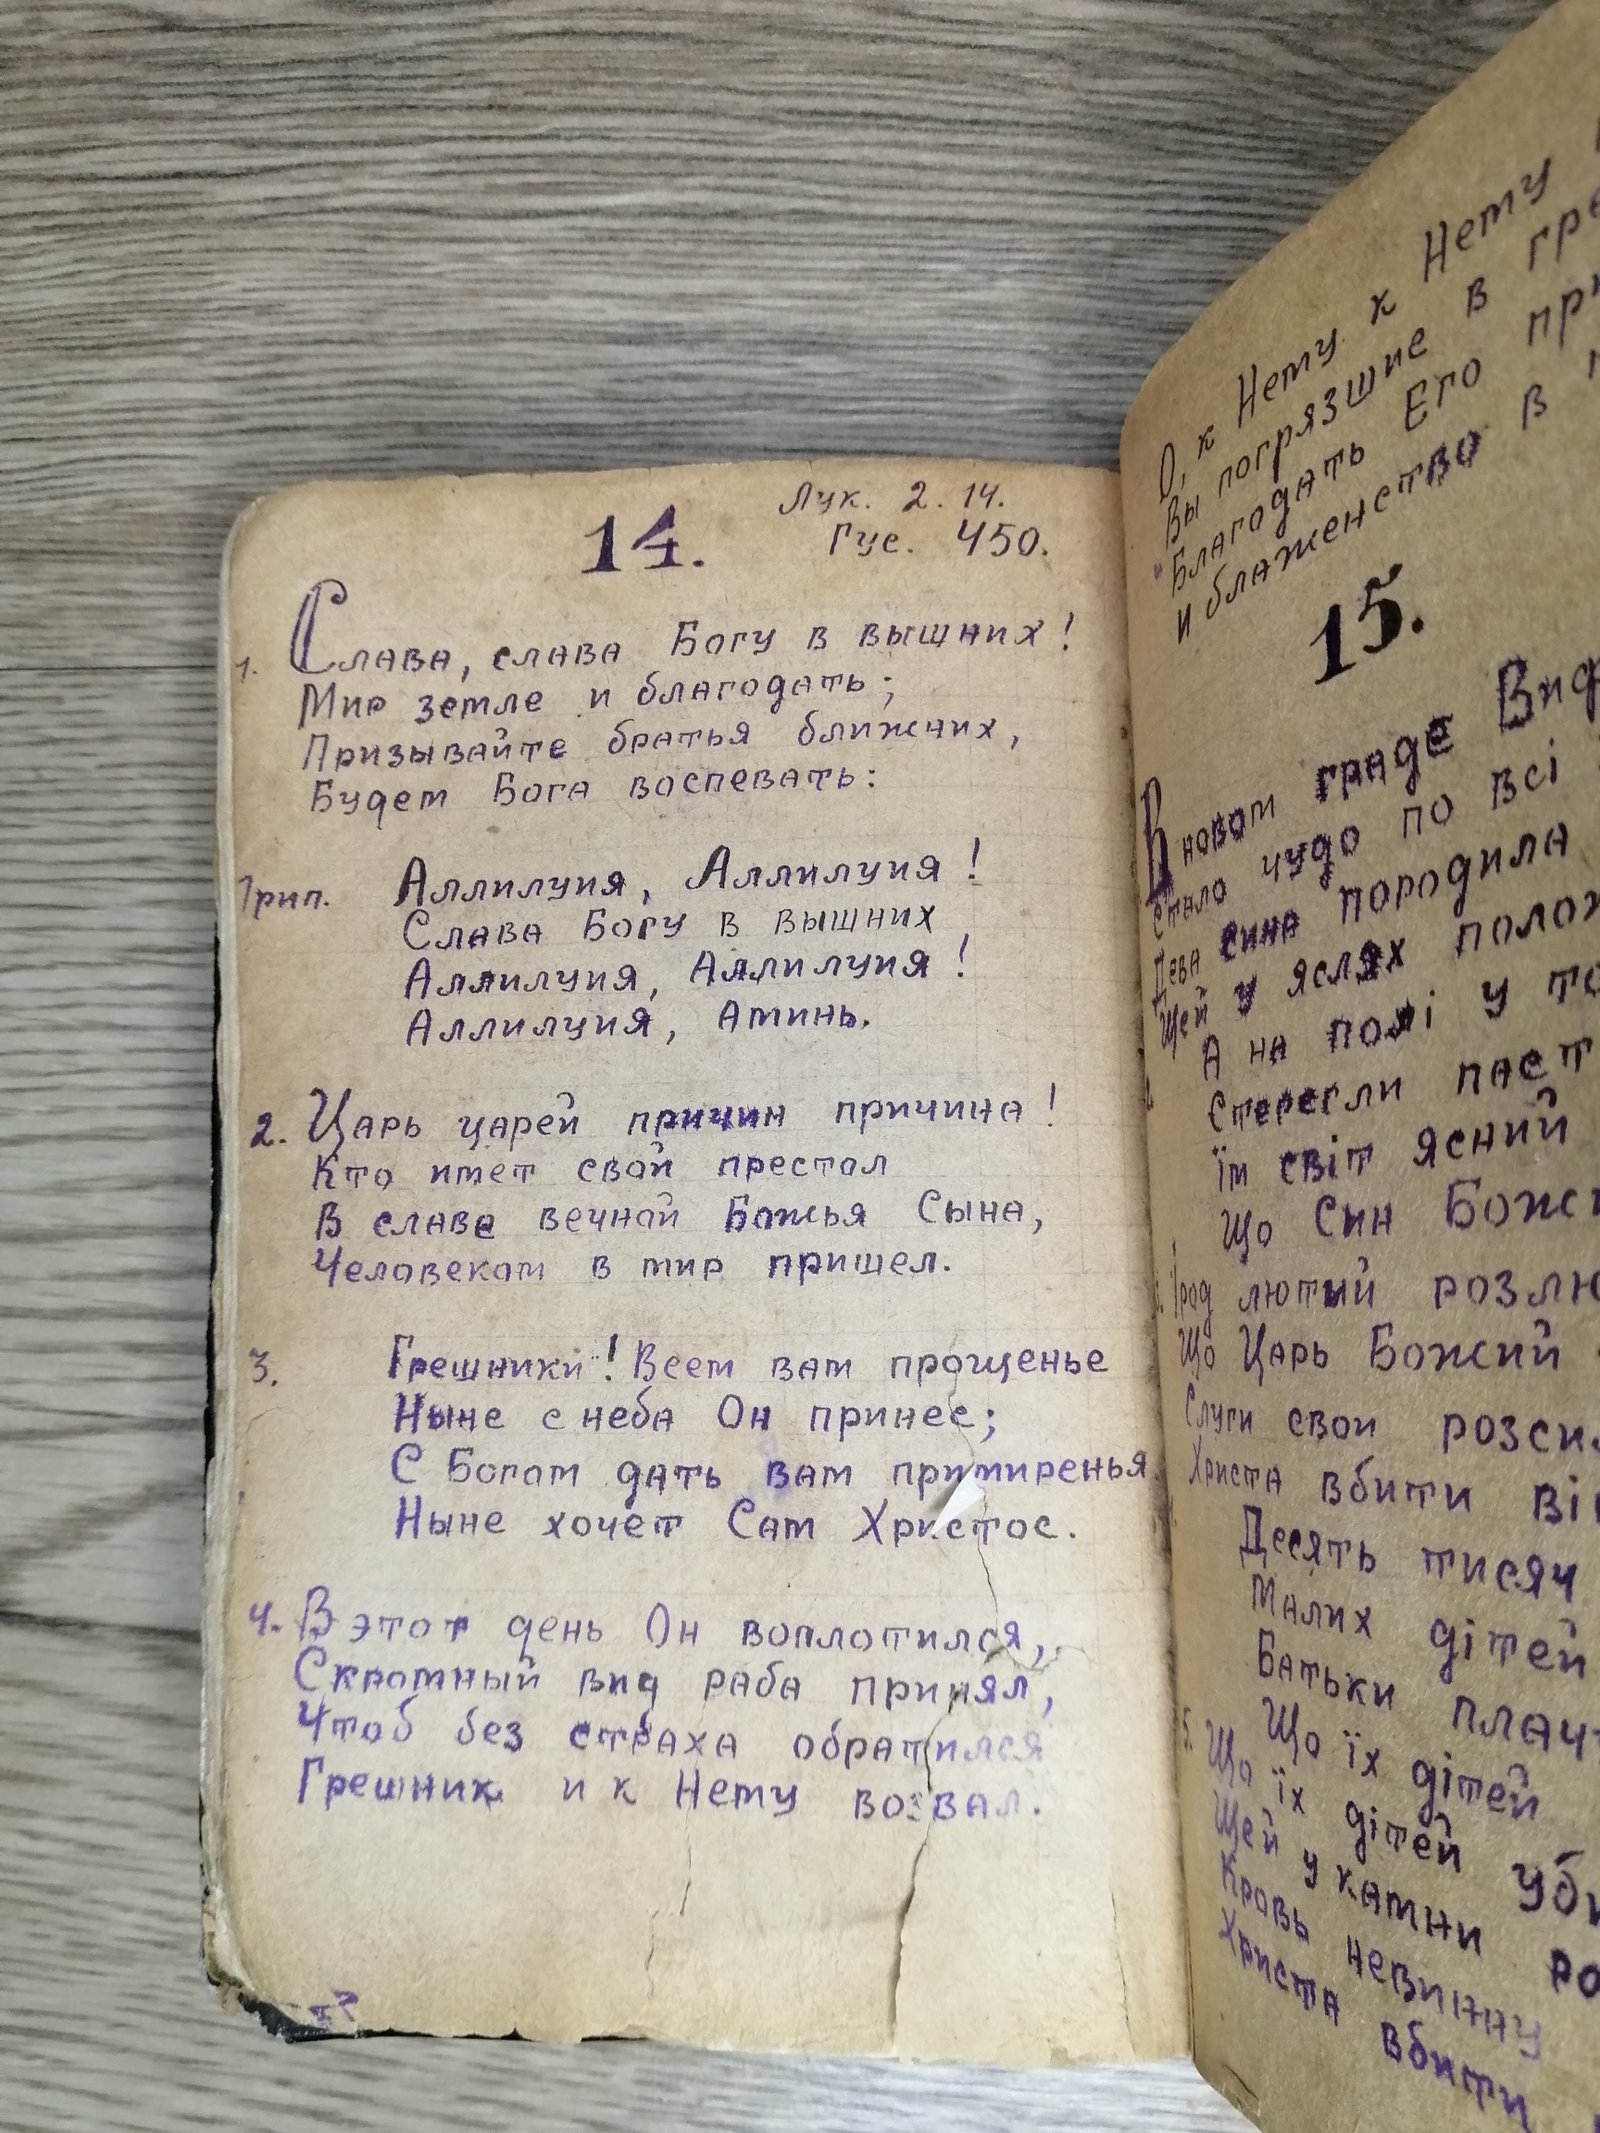 Лук. 2. 14.
14. Гус. 450.
1. Слава, слава Богу в вышних!
Мир земле и благодать;
Призывайте братья ближних,
Будем Бога воспевать:
Прип. Аллилуия, Аллилуия!
Слава Богу в вышних
Аллилуия, Аллилуия!
Аллилуия, Аминь.
2. Царь царей причин причина!
Кто имет свой престол
В славе вечной Божья Сына,
Человеком в мир пришел.
3. Грешники! Всем вам прощенье
Ныне с неба Он принес;
С Богом дать вам примиренья
Ныне хочет Сам Христос.
4. В этот день Он воплотился,
Скромный вид раба принял,
Чтоб без страха обратился
Грешник и к Нему возвал.
О, к Нему к Нему
Вы погрязшие в
Благодать Его
и блаженство в
15.
В новом граде
Стало чудо по всі
Дева сина породила
Щей у яслях
А на полі у
Стерегли
Їм світ ясний
Що Син
Ірод лютий
Що Царь Божий
Слуги свои
Христа вбити
Десять тисяч
Малих дітей
Батьки
Що їх дітей
5. Що їх дітей
Щей у камни
Кровь невинну
Христа вбити